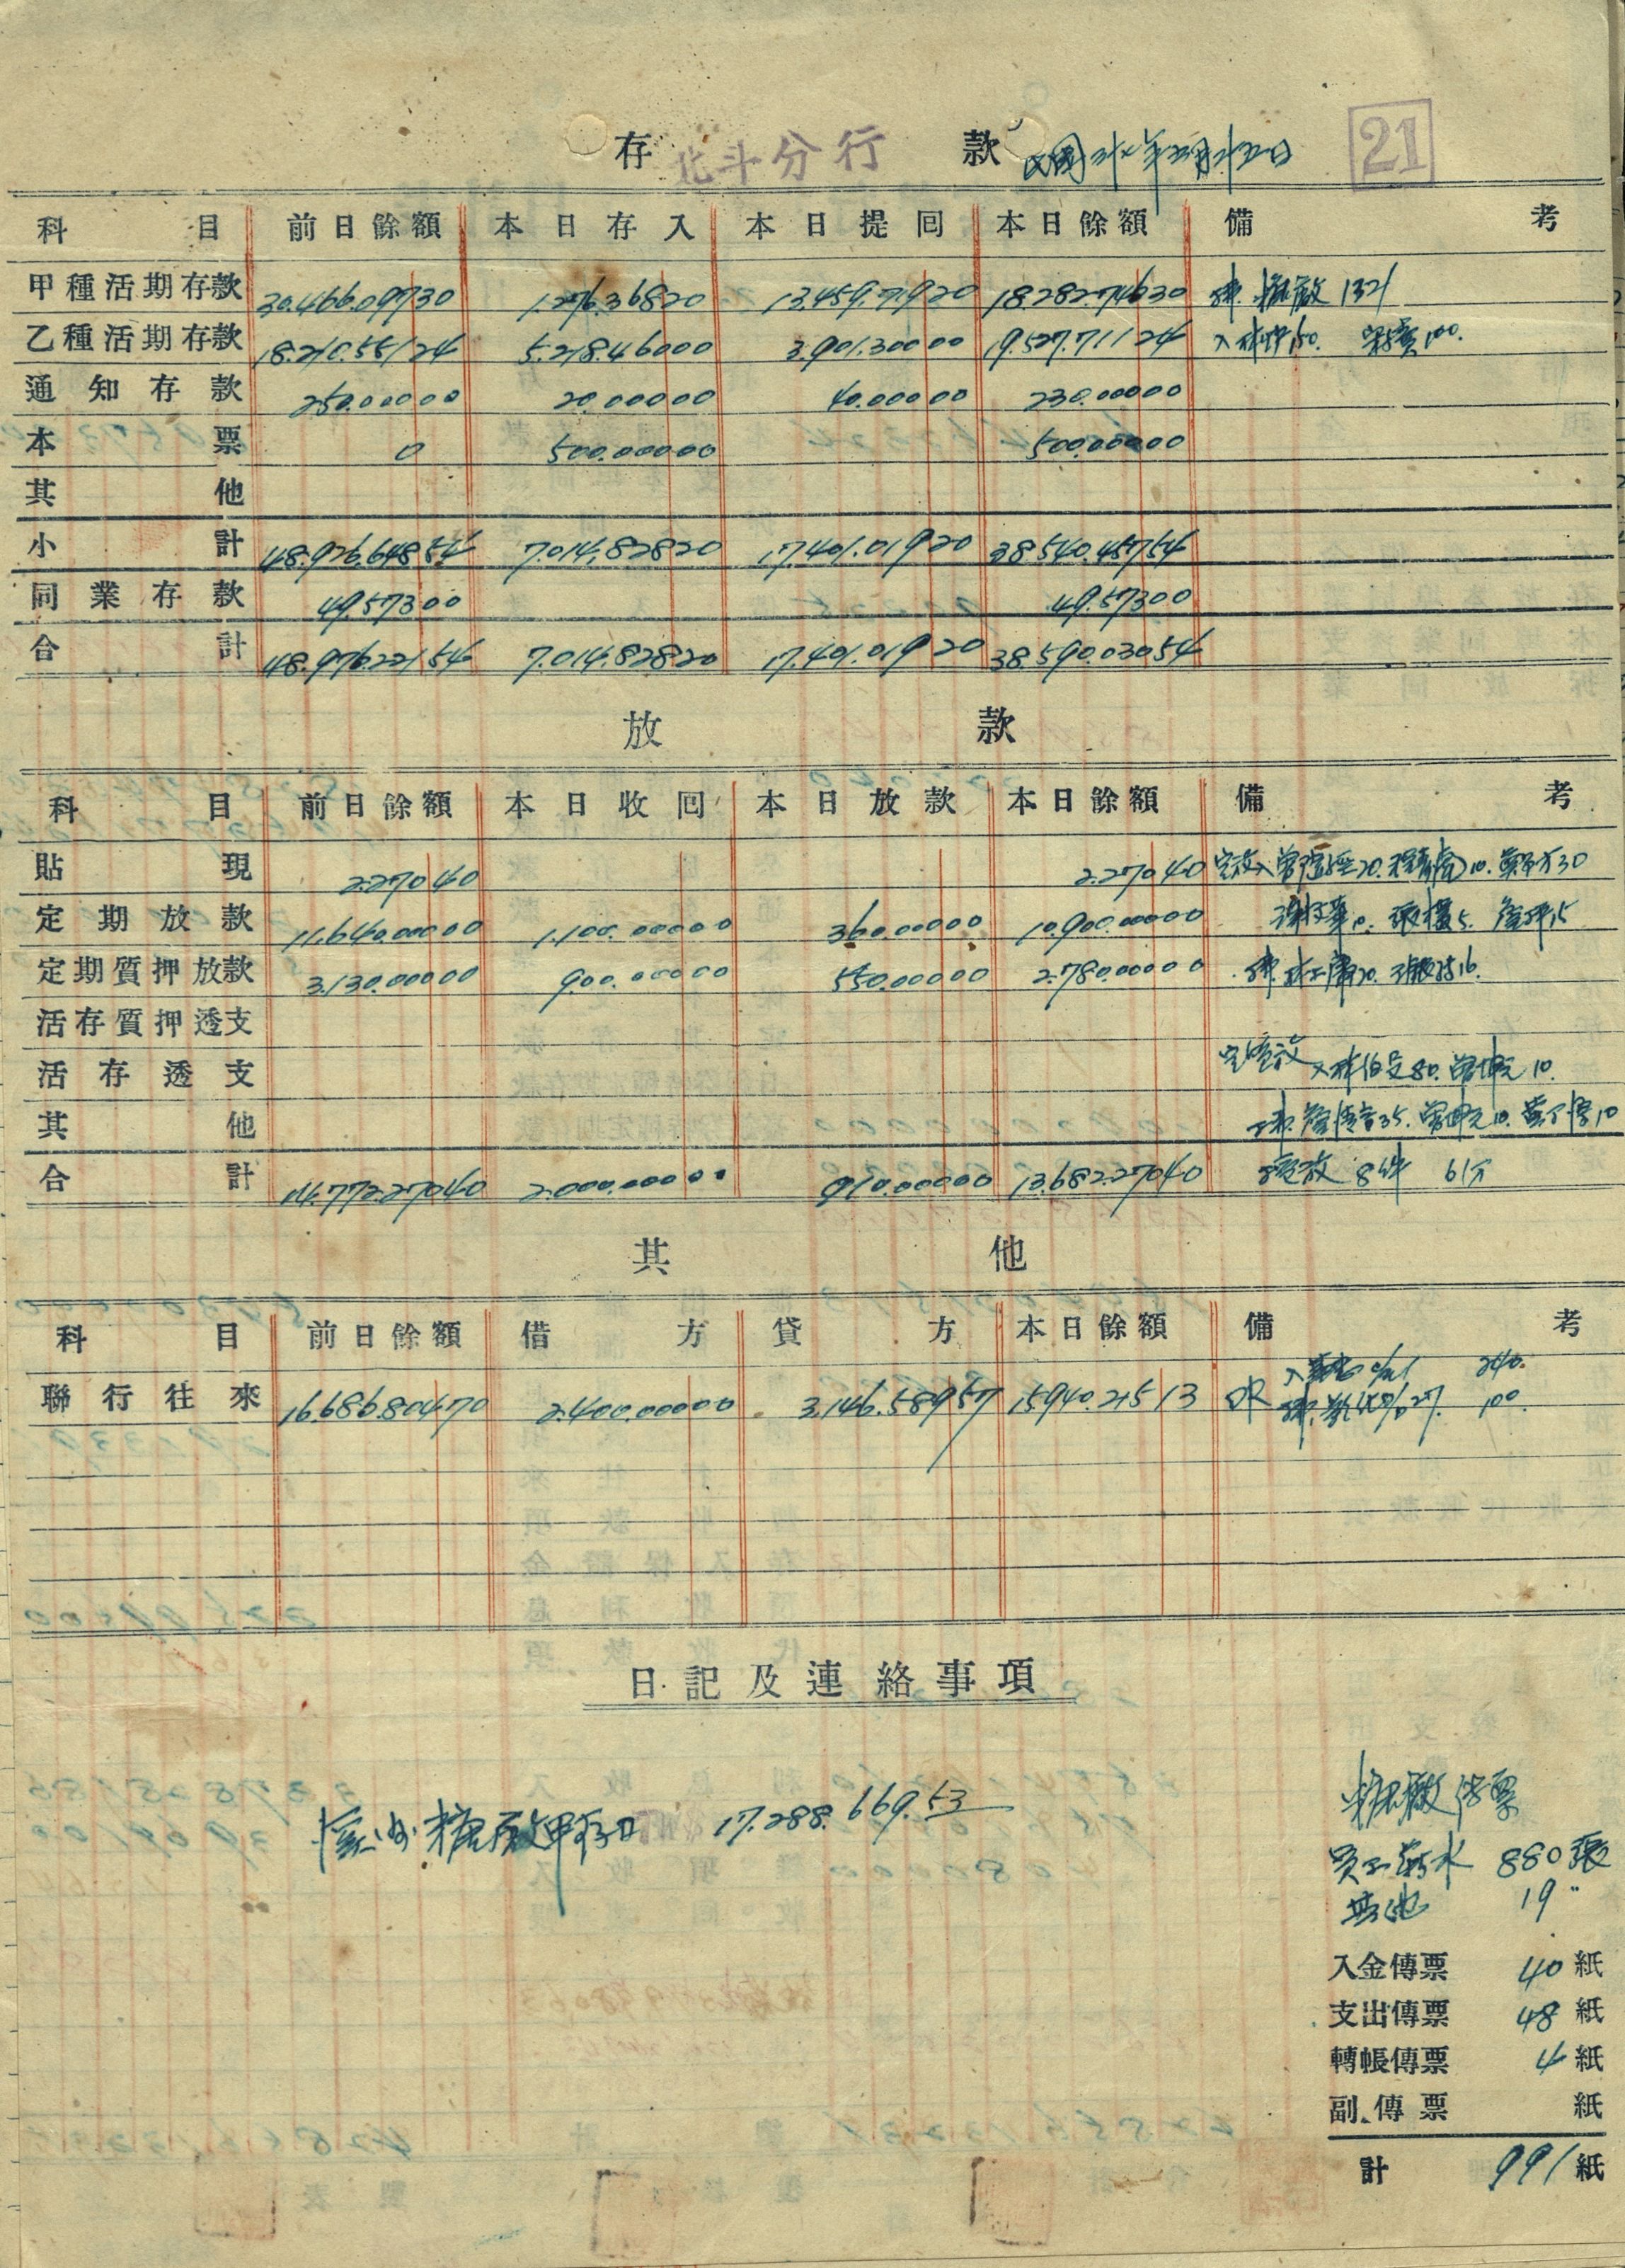 存 北斗分行 款 民國卅七年五月廿五日 21
科目 前日餘額 本日存入 本日提囘 本日餘額 備考
甲種活期存款 30.466.097 30 1.276.368 20 13.459.719 20 18.282.746 30 糖廠 1321
乙種活期存款 18.210.551 24 5.218.460 00 3.901.300 00 19.527.711 24 入 150. 100.
通知存款 250.000 00 20.000 00 40.000 00 230.000 00
本票 0 500.000 00 500.000 00
其他
小計 48.926.648 54 7.014.828 20 17.401.019 20 38.540.457 54
同業存款 49.573 00 49.573 00
合計 48.976.221 54 7.014.828 20 17.401.019 20 38.590.030 54
放款
科目 前日餘額 本日收囘 本日放款 本日餘額 備考
貼現 2.270 40 2.270 40 定放入 20. 10. 30
定期放款 11.640.000 00 1.100.000 00 360.000 00 10.900.000 00 10. 5. 15
定期質押放款 3.130.000 00 900.000 00 550.000 00 2.780.000 00 20. 16.
活存質押透支
活存透支 入林伯足80. 曾坤元10.
其他 35. 曾坤元10. 10
合計 14.772.270 40 2.000.000 00 910.000 00 13.682.270 40 放 8件 61万
其他
科目 前日餘額 借方 貸方 本日餘額 備考
入 240.
聯行往來 16.686.804 70 2.400.000 00 3.146.589 57 15.940.215 13 DR 27. 100.
日記及連絡事項
溪州糖廠甲存口 17.288.669.53
糖廠傳票
員工薪水 880張
其他 19〃
入金傳票 40 紙
支出傳票 48 紙
轉帳傳票 4 紙
副傳票 紙
計 991 紙